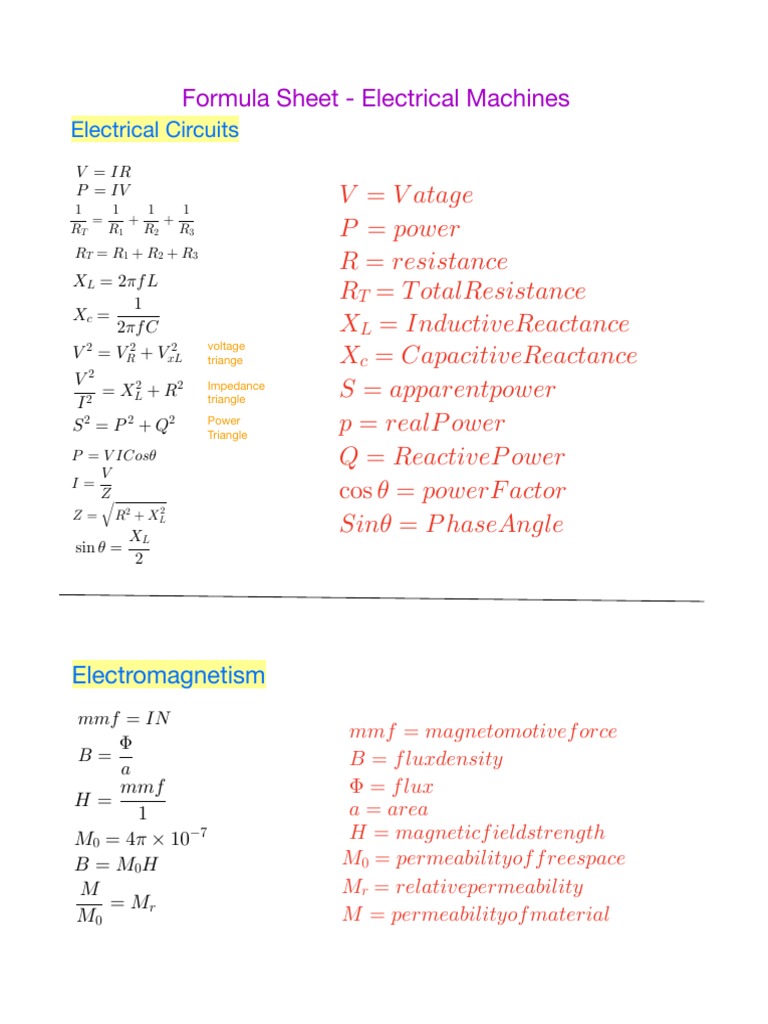 Formula Sheet - Electrical Machines
Electrical Circuits
V = IR
P = IV
1/R_T = 1/R_1 + 1/R_2 + 1/R_3
R_T = R_1 + R_2 + R_3
X_L = 2πfL
X_c = 1/2πfC
V² = V_R² + V_xL² voltage triange
V²/I² = X_L² + R² Impedance triangle
S² = P² + Q² Power Triangle
P = VICosθ
I = V/Z
Z = √(R² + X_L²)
sin θ = X_L/2
V = Vatage
P = power
R = resistance
R_T = TotalResistance
X_L = InductiveReactance
X_c = CapacitiveReactance
S = apparentpower
p = realPower
Q = ReactivePower
cos θ = powerFactor
Sinθ = PhaseAngle
Electromagnetism
mmf = IN
B = Φ/a
H = mmf/1
M_0 = 4π × 10⁻⁷
B = M_0H
M/M_0 = M_r
mmf = magnetomotiveforce
B = fluxdensity
Φ = flux
a = area
H = magneticfieldstrength
M_0 = permeabilityoffreespace
M_r = relativepermeability
M = permeabilityofmaterial